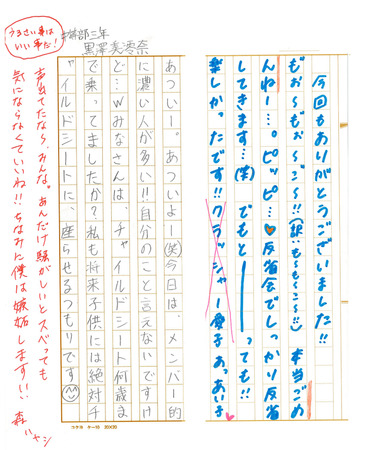 今回もありがとうございました!!
本当ごめ
んねー…。ピッピ…♥反省会でしっかり反省
してきます…(笑) でもとーーーっても!!
楽しかったです!! クラッシャー愛子 あっあい子
部三年
黒澤
あつい〜。あついよー(笑)今日は、メンバー的
に濃い人が多い!!自分のこと言えないですけ
ど…wみなさんは、チャイルドシート何歳ま
で乗ってましたか?私も将来子供には絶対チ
ャイルドシートに、座らせるつもりです
コクヨ ケ-10 20×20
うるさい事は
いい事だ!
声出てたなら、みんな。あんだけ騒がしいとスベっても
気にならなくていいね!!ちなみに僕は嫉妬します!! 森ハヤシ